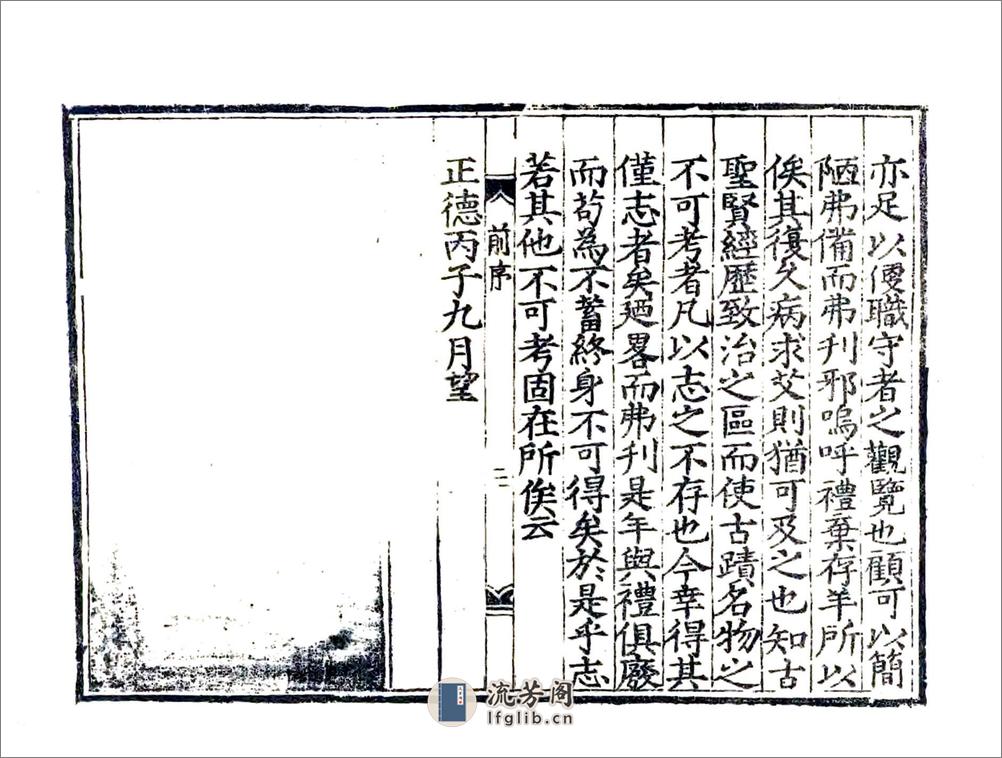 亦足以優職守者之觀覽也顧可以簡
陋弗備而弗刋邪嗚呼禮棄存羊所以
俟其復久病求艾則猶可及之也知古
聖賢經歷致治之區而使古蹟名物之
不可考者凡以志之不存也今幸得其
僅志者矣廼畧而弗刋是年與禮俱廢
而苟為不蓄終身不可得矣於是乎志
若其他不可考固在所俟云
前序
二
正德丙子九月望
流芳阁
lfglib.cn